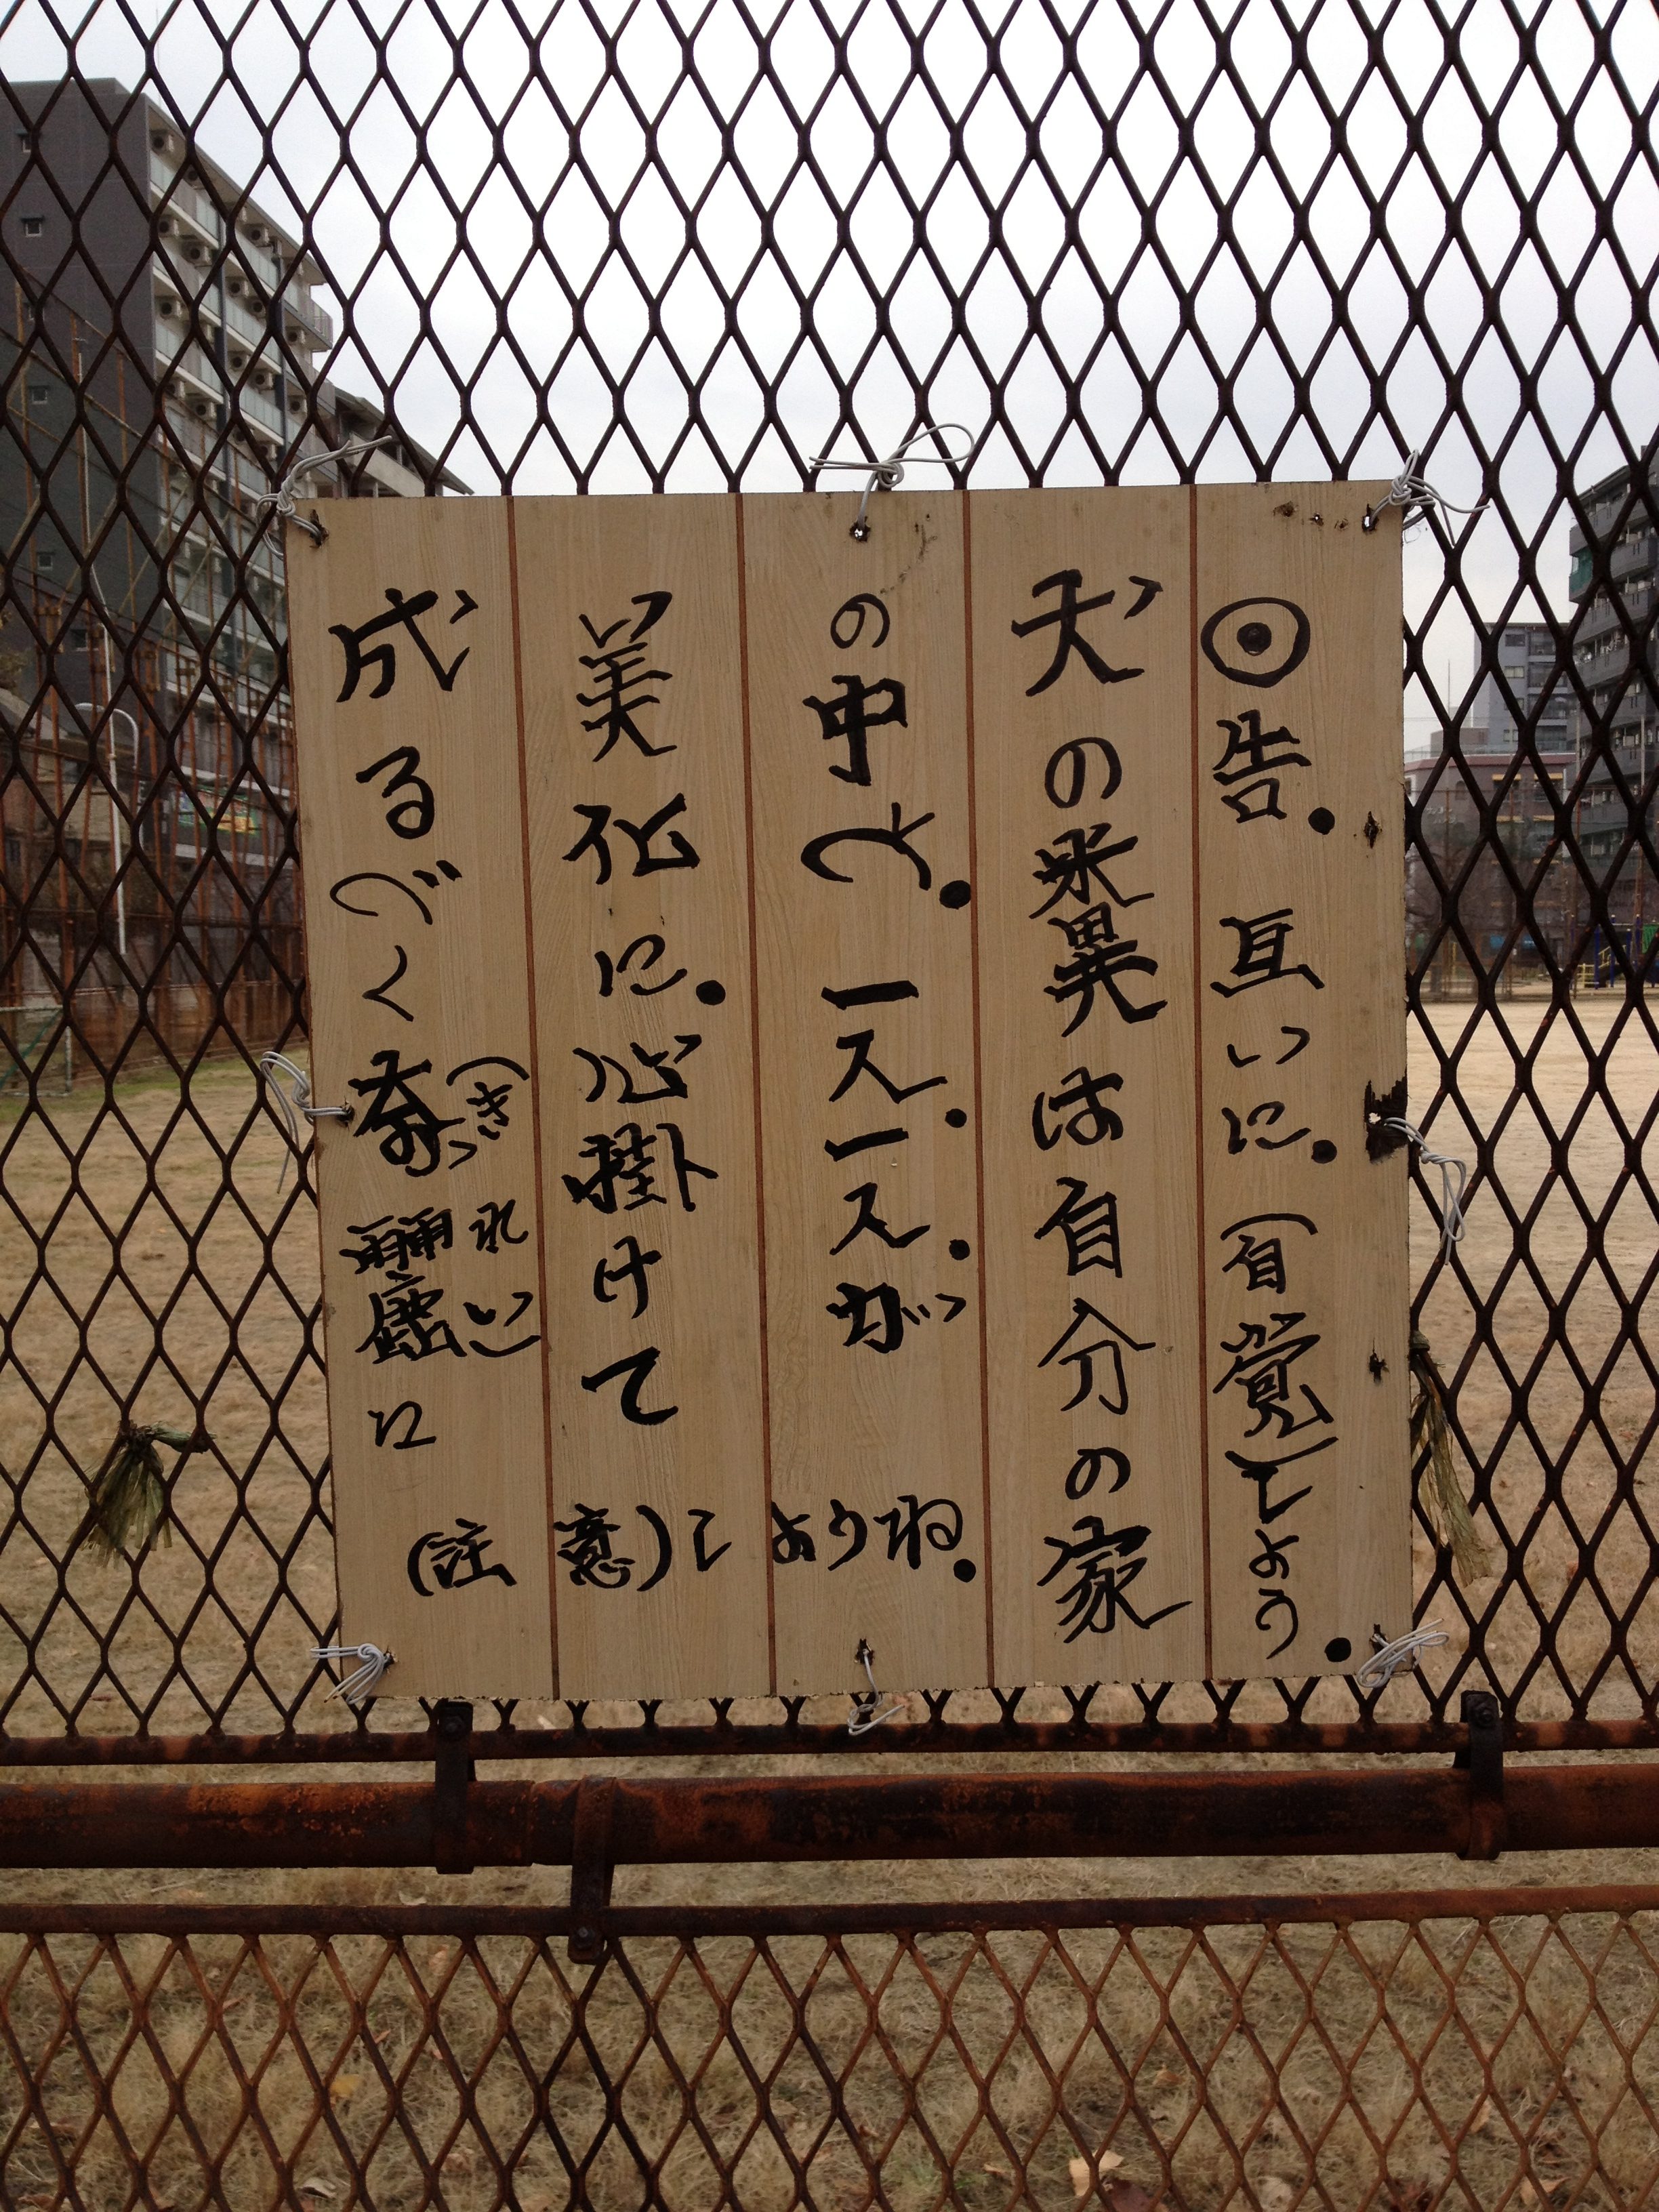 ◉告.互いに.(自覚)しよう.
犬の糞は自分の家
の中で.一人.一人.が
い美化に.心掛けて
成るべく奇麗に
(きれい)
(注意)しようね.